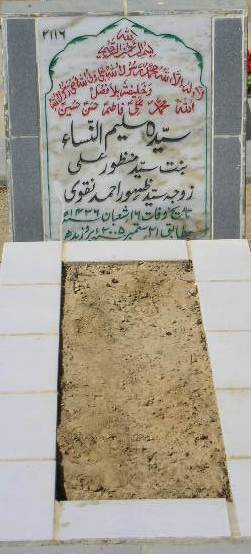 ۳۱۱۶
اللہ
بسم اللہ الرحمن الرحیم
لا الہ الا اللہ محمد رسول اللہ علی ولی اللہ وصی رسول اللہ
وخلیفتہ بلا فصل
اللہ محمد علی فاطمہ حسن حسین
سیدہ سلیم النساء
بنت سید منظور علی
زوجہ سید ظہور احمد نقوی
تاریخ وفات ۱۶ شعبان ۱۴۲۶ھ
مطابق ۲۱ ستمبر ۲۰۰۵ء بروز بدھ